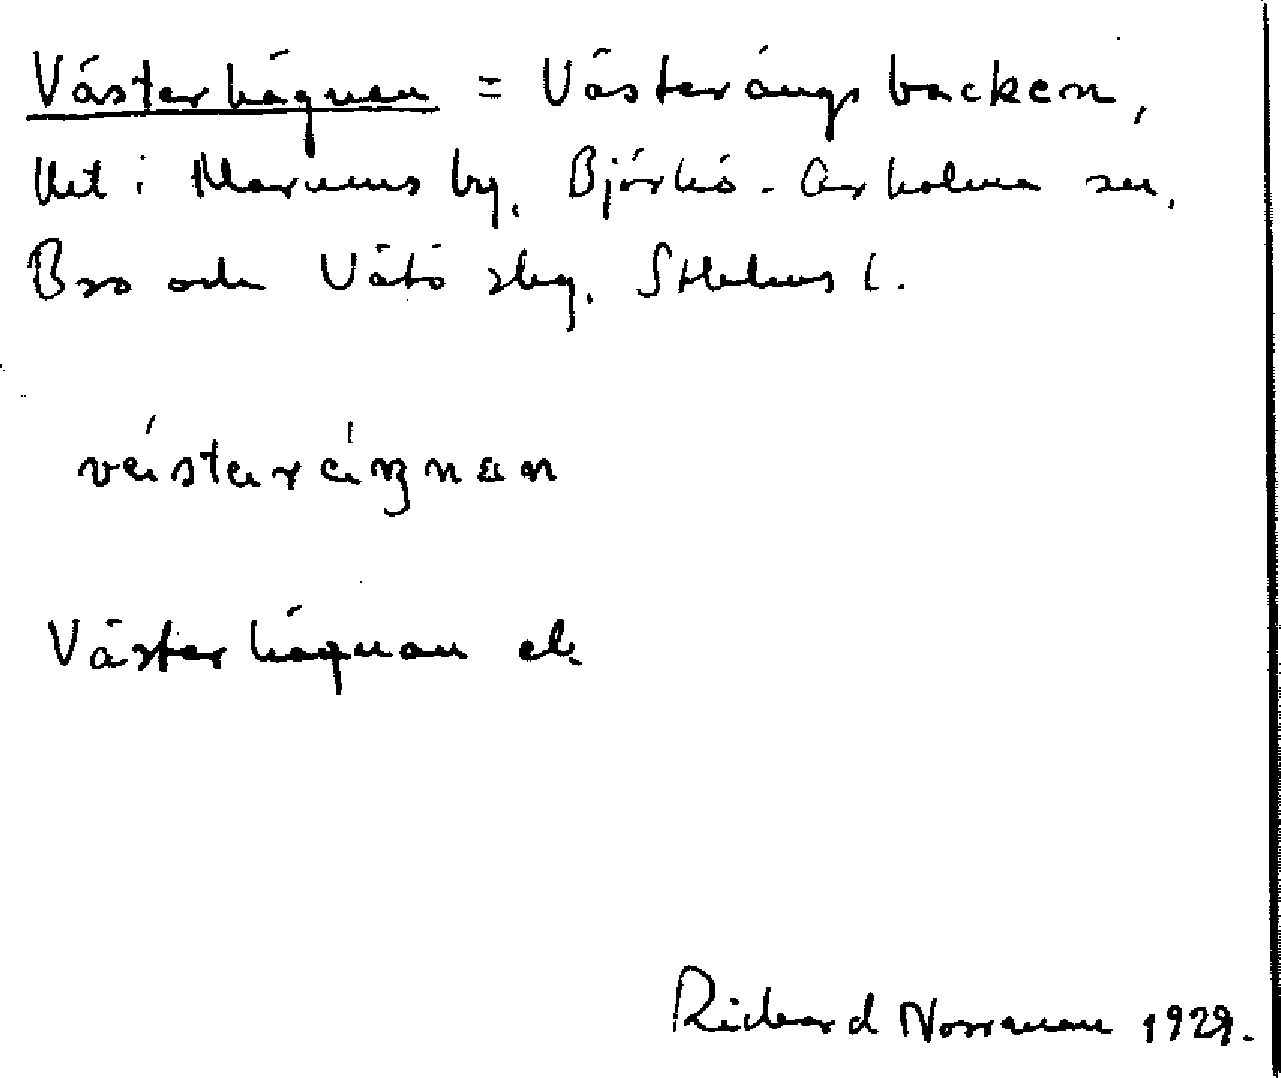 Västerhägnen = Västerängsbacken,
bet i Marums by, Björkö-Arholma sn,
Bro och Vätö skg. Sthlms l.
västəräŋnan
Västerhägnan ek.
Richard Norrman 1929.